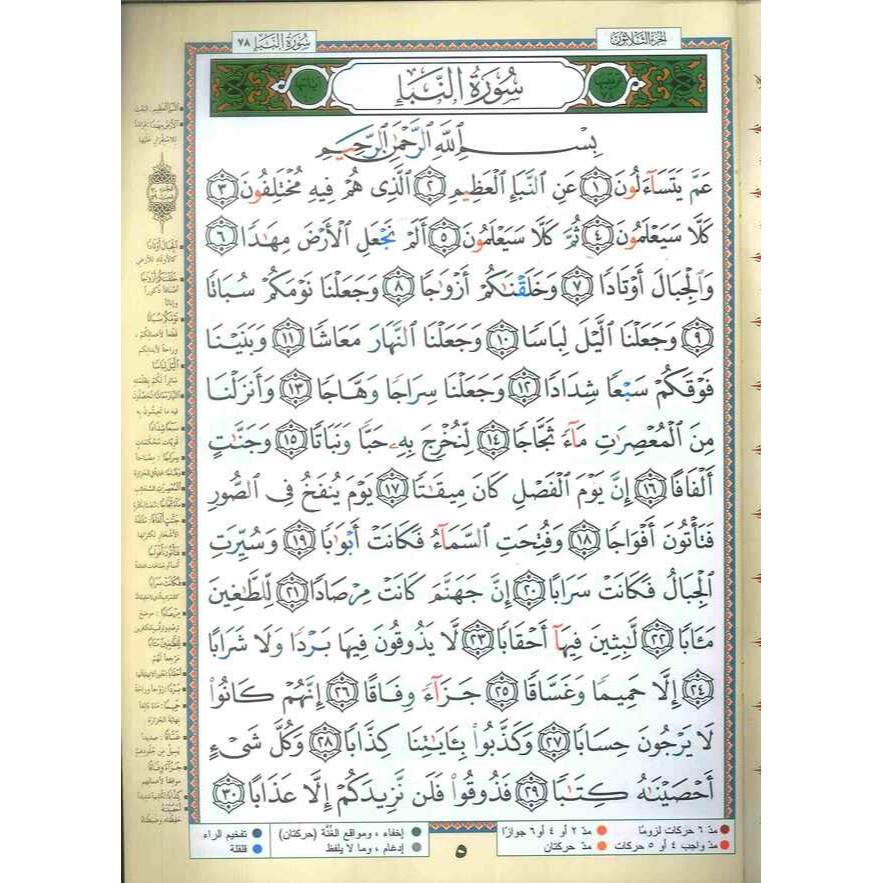 سُورَةُ النَّبَإِ ٧٨
الجزء الثلاثون
سُورَةُ النَّبَإِ
بِسْمِ اللَّهِ الرَّحْمَٰنِ الرَّحِيمِ
عَمَّ يَتَسَآءَلُونَ ١ عَنِ النَّبَإِ الْعَظِيمِ ٢ الَّذِى هُمْ فِيهِ مُخْتَلِفُونَ ٣
كَلَّا سَيَعْلَمُونَ ٤ ثُمَّ كَلَّا سَيَعْلَمُونَ ٥ أَلَمْ نَجْعَلِ الْأَرْضَ مِهَٰدًا ٦
وَالْجِبَالَ أَوْتَادًا ٧ وَخَلَقْنَٰكُمْ أَزْوَٰجًا ٨ وَجَعَلْنَا نَوْمَكُمْ سُبَاتًا
٩ وَجَعَلْنَا الَّيْلَ لِبَاسًا ١٠ وَجَعَلْنَا النَّهَارَ مَعَاشًا ١١ وَبَنَيْنَا
فَوْقَكُمْ سَبْعًا شِدَادًا ١٢ وَجَعَلْنَا سِرَاجًا وَهَّاجًا ١٣ وَأَنزَلْنَا
مِنَ الْمُعْصِرَٰتِ مَآءً ثَجَّاجًا ١٤ لِّنُخْرِجَ بِهِۦ حَبًّا وَنَبَاتًا ١٥ وَجَنَّٰتٍ
أَلْفَافًا ١٦ إِنَّ يَوْمَ الْفَصْلِ كَانَ مِيقَٰتًا ١٧ يَوْمَ يُنفَخُ فِى الصُّورِ
فَتَأْتُونَ أَفْوَاجًا ١٨ وَفُتِحَتِ السَّمَآءُ فَكَانَتْ أَبْوَٰبًا ١٩ وَسُيِّرَتِ
الْجِبَالُ فَكَانَتْ سَرَابًا ٢٠ إِنَّ جَهَنَّمَ كَانَتْ مِرْصَادًا ٢١ لِّلطَّٰغِينَ
مَـَٔابًا ٢٢ لَّٰبِثِينَ فِيهَآ أَحْقَابًا ٢٣ لَّا يَذُوقُونَ فِيهَا بَرْدًا وَلَا شَرَابًا
٢٤ إِلَّا حَمِيمًا وَغَسَّاقًا ٢٥ جَزَآءً وِفَاقًا ٢٦ إِنَّهُمْ كَانُوا۟
لَا يَرْجُونَ حِسَابًا ٢٧ وَكَذَّبُوا۟ بِـَٔايَٰتِنَا كِذَّابًا ٢٨ وَكُلَّ شَىْءٍ
أَحْصَيْنَٰهُ كِتَٰبًا ٢٩ فَذُوقُوا۟ فَلَن نَّزِيدَكُمْ إِلَّا عَذَابًا ٣٠
مدّ ٦ حركات لزوماً مدّ ٢ أو ٤ أو ٦ جوازاً إخفاء ، ومواقع الغُنَّة (حركتان) تفخيم الراء
مدّ واجب ٤ أو ٥ حركات مدّ حركتان إدغام ، وما لا يلفظ قلقلة
٥